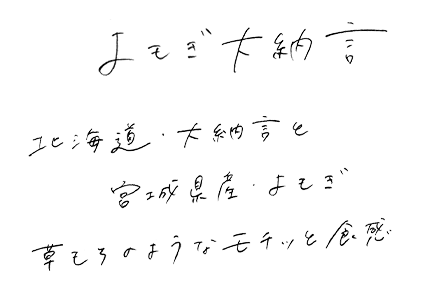 よもぎ大納言
北海道・大納言と
宮城県産・よもぎ
草もちのようなモチッと食感